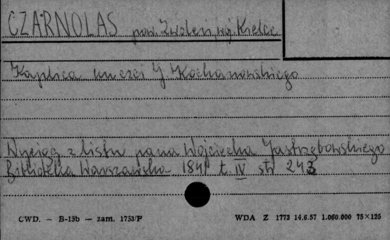 CZARNOLAS pow. Zwoleń, woj. Kielce
Kaplica ku czci J Kochanowskiego
Wyciąg z listu pana Wojciecha Jastrzębowskiego
Biblioteka Warszawska 184 t. IV str 243
CWD. — B-13b — zam. 1753/P
WDA Z 1773 14.6.57 1.060.000 75×125